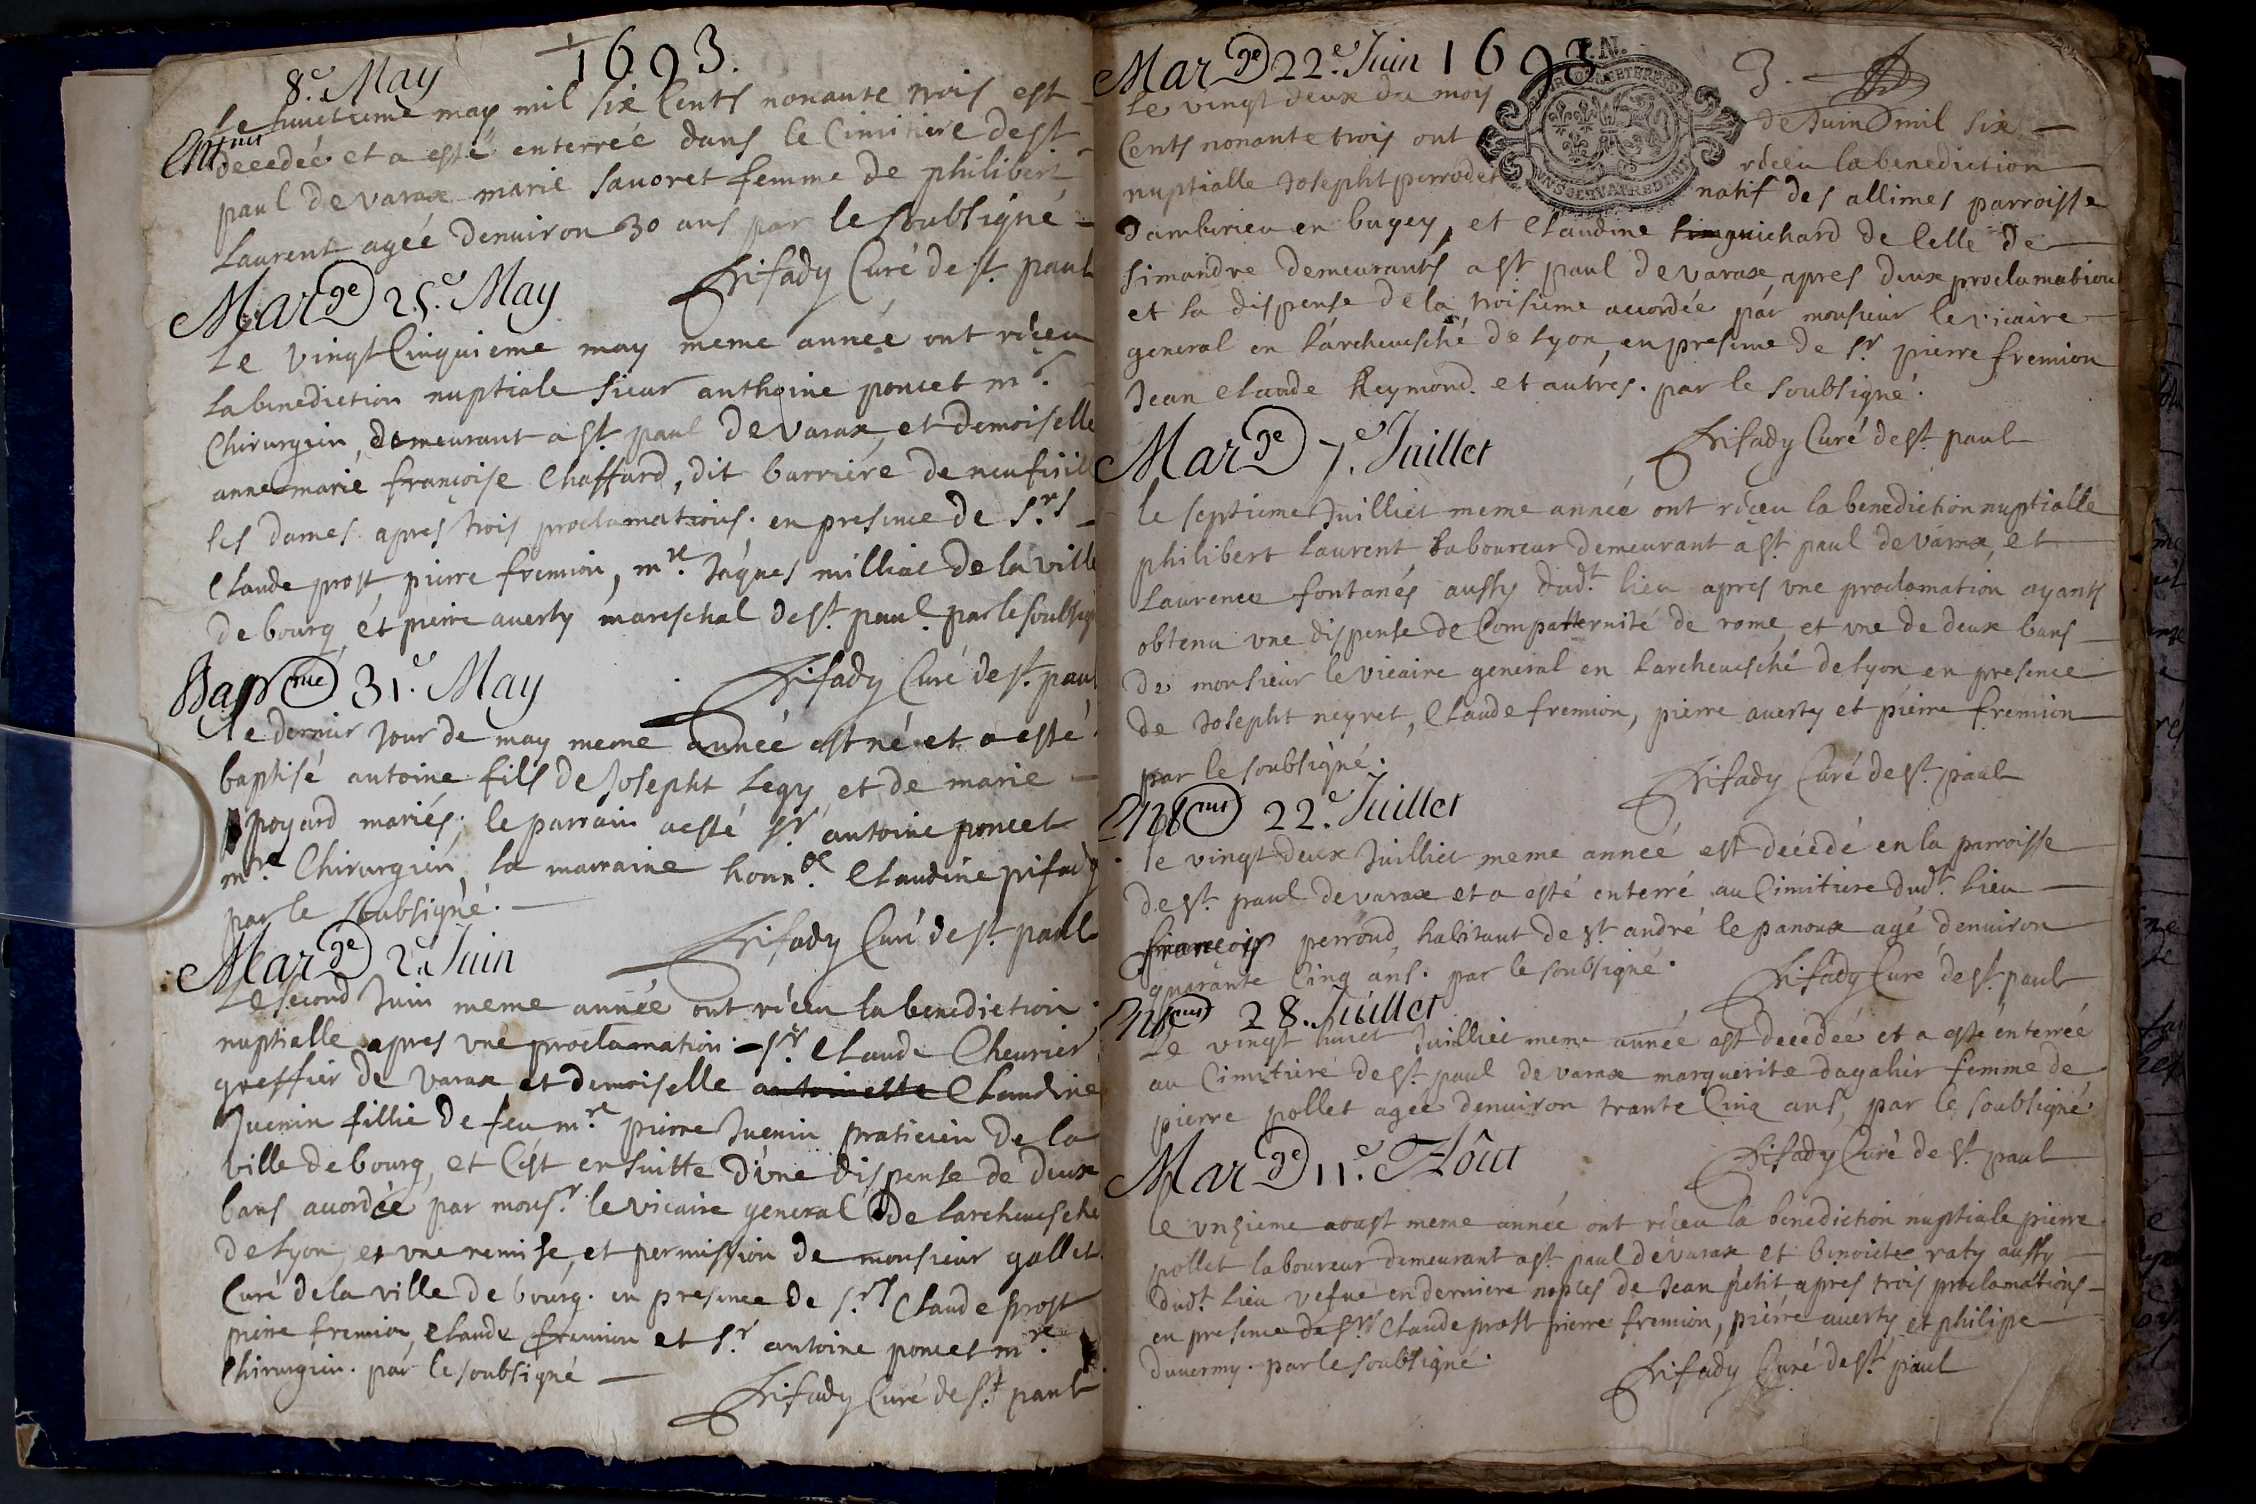 1693.
8.e May
Le huictieme may mil six Cents nonante trois est
decedée et a esté enterrée dans le Cimitiere de st.
paul de varax marie sauoret femme de philibert
Laurent agée denuiron 30 ans par le soubsigné
pifady Curé de st. paul
Marge 25.e May
Le vingt Cinquieme may meme année ont réçeu
la benediction nuptiale sieur anthoine poncet mr.
Chirurgien, demeurant a st. paul de varax, et demoiselle
anne marie françoise Chaffard, dit barriére de neufuille
les dames. apres trois proclamations. en presence de s.rs
Claude prost, pierre fremion, m.re Jáques milliat de la ville
de bourg, et pierre auerty mareschal de st. paul. par le soubsig
pifady Curé de st. paul
Bapt me 31.e May
Le dernier Jour de may meme année est né et a esté
baptisé antoine fils de Josepht Legy et de marie
poyard mariés; le parrain a esté sr antoine poncet
m.re Chirurgien, la marraine honn.e Claudine pifady
par le soubsigné.
pifady Curé de st. paul
Marge 2.e Juin
Le second Juin meme année ont réçeu la benediction
nuptialle apres vne proclamation. sr. Claude Cheurier
greffier de varax et demoiselle antoinette Claudine
Juenin fillie de feu m.re pierre Juenin praticien de la
ville de bourg, et C'est ensuitte d'vne dispense de deux
bans acordée par mons.r le vicaire general de larcheuesché
de Lyon, et vne remise, et permission de monsieur gallet
Curé de la ville de bourg. en presence de s.rs Claude prost
pierre fremion, Claude fremion et s.r antoine poncet m.re
Chirurgien. par le soubsigné
pifady Curé de s.t paul
Marge 22.e Juin 1693.
3.
Le vingt deux du moys de Juin mil six
Cents nonante trois ont réçeu la benediction
nuptialle Josepht perrodet natif des allimes parroisse
dambirieu en bugey, et Claudine sim guichard de Celle de
simandre demeurants a st. paul de varax, apres deux proclamation
et la dispense de la troisieme accordée par monsieur le vicaire
general en l'archeuesché de Lyon, en presence de sr pierre fremion
Jean Claude Reymond. et autres. par le soubsigné.
pifady Curé de st. paul
Marge 7.e Juillet
le septieme Juilliet meme année ont réçeu la benediction nuptialle
philibert Laurent Laboureur demeurant a st. paul de varax, et
Laurence fontanés aussy dudt. lieu apres vne proclamation ayants
obtenu vne dispense de Compatternité de rome, et vne de deux bans
de monsieur le vicaire general en Larcheuesché de Lyon en presence
de Josepht neyret, Claude fremion, pierre auerty et pierre fremion
par le soubsigné.
pifady Curé de st. paul
22.e Juillet
le vingt deux Juilliet meme année est décédé en la parroisse
de st. paul de varax et a esté enterré au Cimitiere dudt. Lieu
francois perroud, habitant de st. andré le panoux agé denuiron
quarante Cinq ans. par le soubsigné.
pifady Curé de st. paul
28. Juillet
Le vingt huict Juilliet meme année est decedée et a esté enterrée
au Cimitiere de st. paul de varax marguerite dagalier femme de
pierre pollet agée denuiron trante Cinq ans, par le soubsigné.
pifady Curé de st. paul
Marge 11.e Aôut
le vnzieme aoust meme année ont réçeu la benediction nuptiale pierre
pollet laboureur demeurant a st. paul de varax et benoicte raty aussy
dudt. Lieu vefue en derniere nopces de Jean petit, apres trois proclamations
en presence de srs Claude prost pierre fremion, pierre auerty et philipe
duuermy. par le soubsigné.
pifady Curé de st. paul